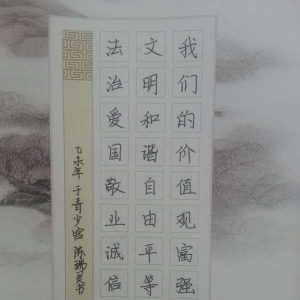 我们的价值观富强
文明和谐自由平等
法治爱国敬业诚信
乙未年于青少宫陈瑞良书